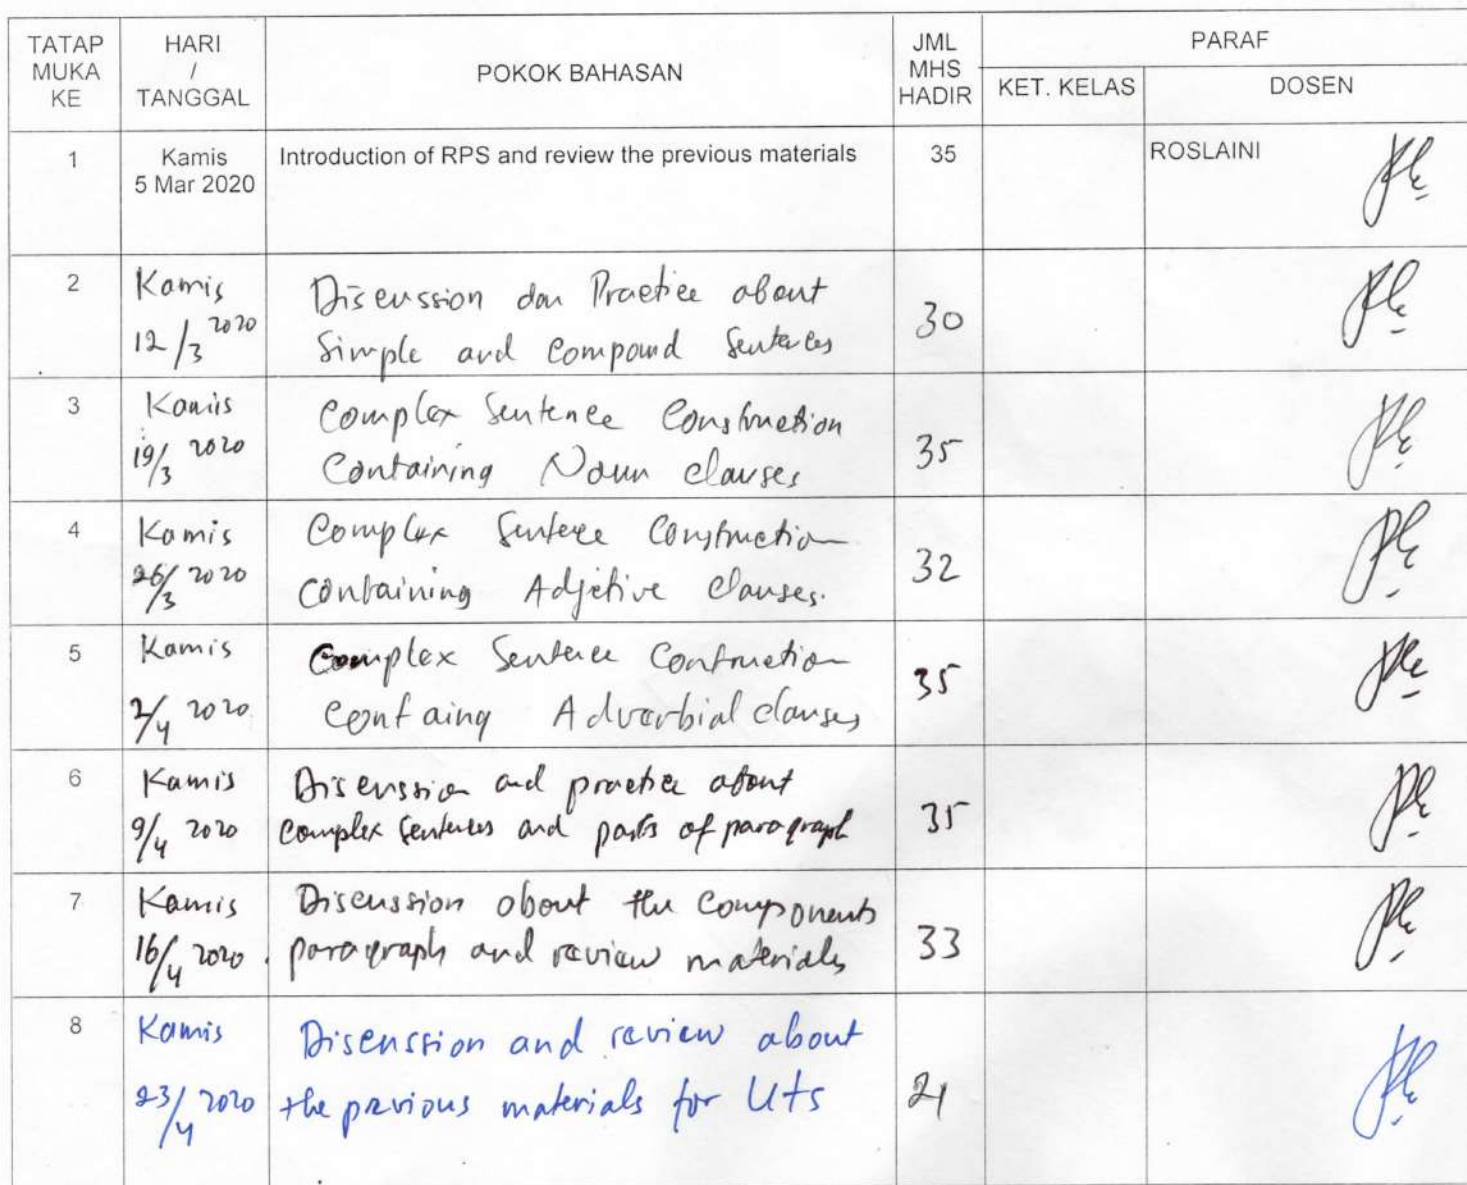 TATAP MUKA KE
HARI / TANGGAL
POKOK BAHASAN
JML MHS HADIR
PARAF
KET. KELAS
DOSEN
1
Kamis
5 Mar 2020
Introduction of RPS and review the previous materials
35
ROSLAINI
2
Kamis
12/3 2020
Discussion dan Practice about
Simple and Compound Sentences
30
3
Kamis
19/3 2020
Complex Sentence Construction
Containing Noun clauses
35
4
Kamis
26/3 2020
Complex Sentece Construction
Containing Adjetive Clauses.
32
5
Kamis
2/4 2020
Complex Sentence Contruction
Containg Adverbial clauses
35
6
Kamis
9/4 2020
Discussion and practice about
complex sentences and parts of paragraph
35
7
Kamis
16/4 2020
Discussion about the components
paragraph and review materials
33
8
Kamis
23/4 2020
Discussion and review about
the previous materials for Uts
21